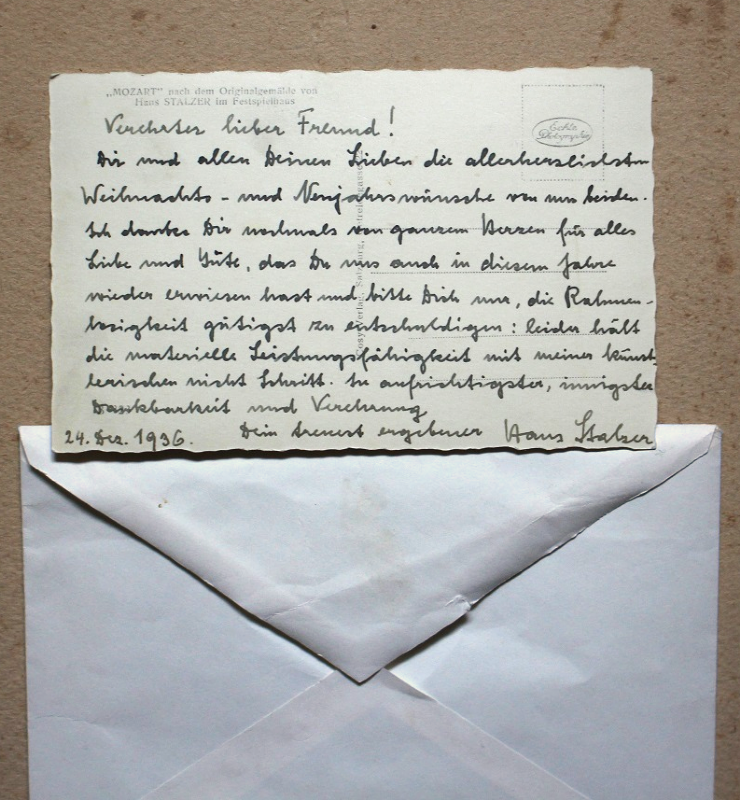 „MOZART" nach dem Originalgemälde von
Hans STALZER im Festspielhaus
Echte
Photographie
Verehrter lieber Freund!
Dir und allen Deinen Lieben die allerherzlichsten
Weihnachts- und Neujahrswünsche von uns beiden.
Ich danke Dir nochmals von ganzem Herzen für alles
Liebe und Güte, das Du uns auch in diesem Jahre
wieder erwiesen hast und bitte Dich nur, die Rahmen-
losigkeit gütigst zu entschuldigen: leider hält
die materielle Leistungsfähigkeit mit meiner künst-
lerischen nicht Schritt. In aufrichtigster, innigster
Dankbarkeit und Verehrung
24. Dez. 1936. Dein treuest ergebener Hans Stalzer